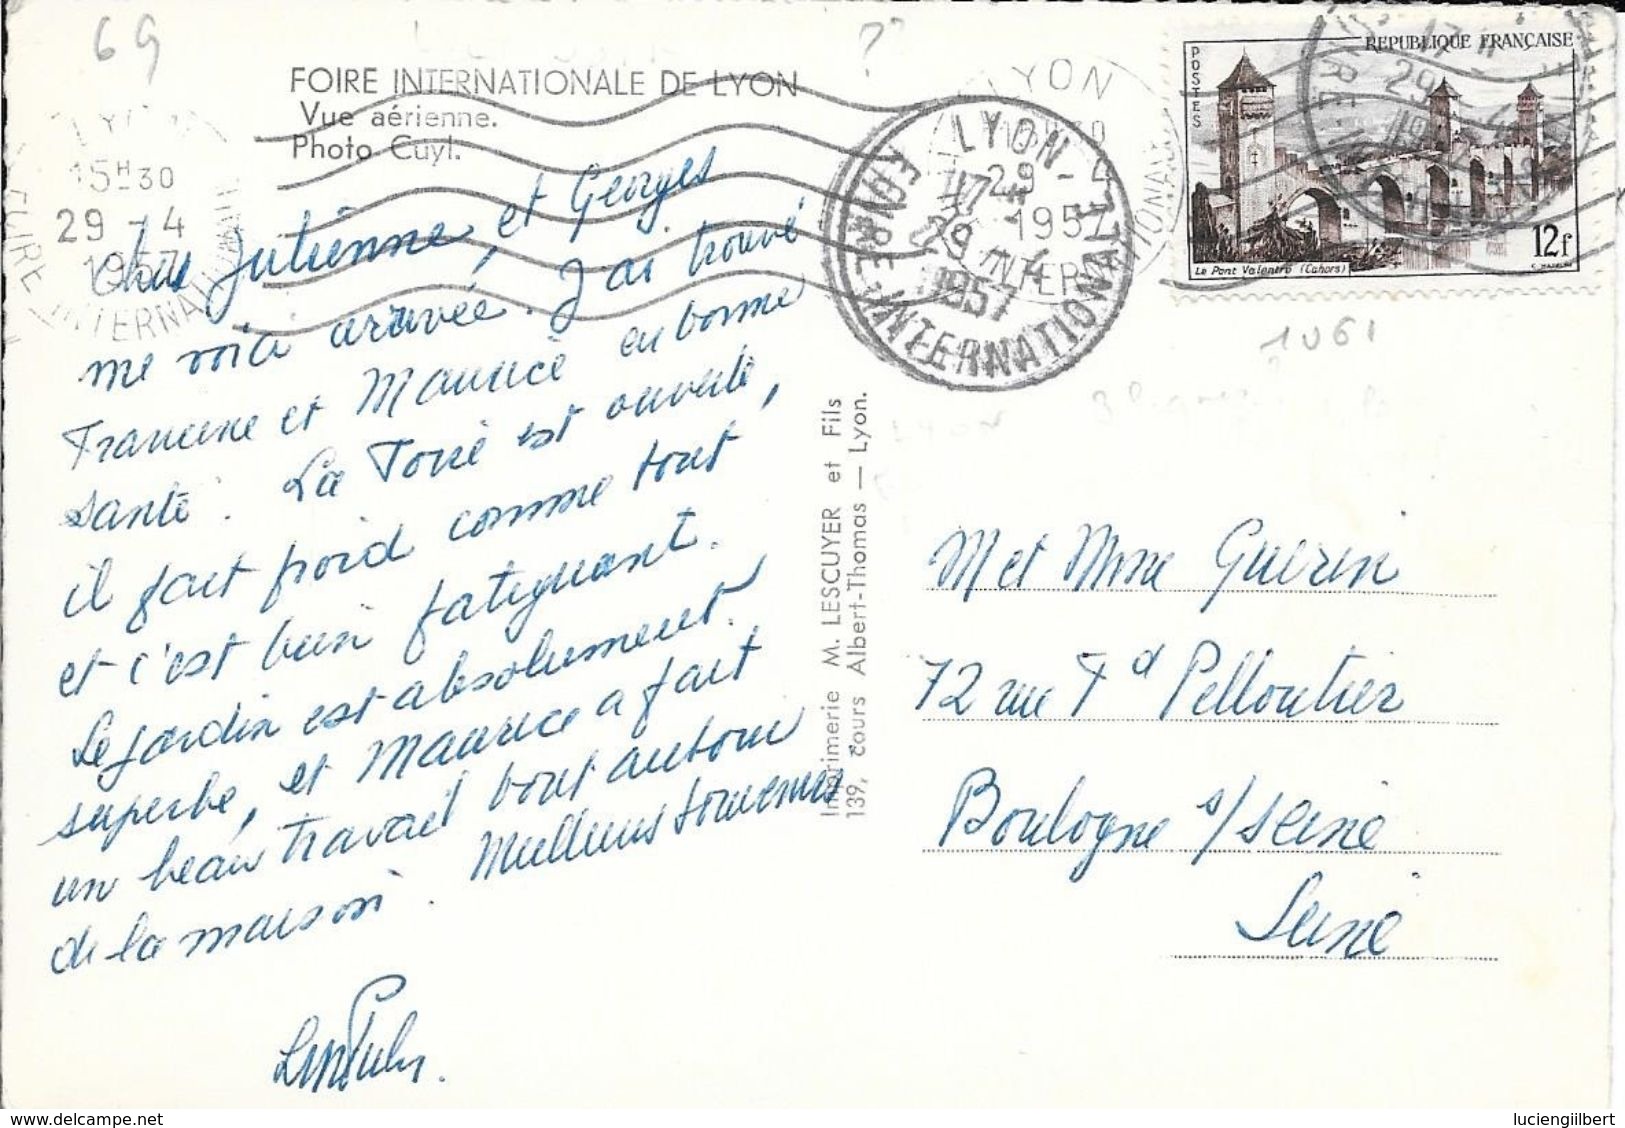 69
?
FOIRE INTERNATIONALE DE LYON
Vue aérienne.
Photo Cuyl.
LYON
15H30
29 - 4
1957
FOIRE INTERNATIONALE
LYON
17H
29 - 4
1957
FOIRE INTERNATIONALE
LYON
15H30
29 - 4
1957
INTERNATIONALE
POSTES
REPUBLIQUE FRANÇAISE
Le Pont Valentré (Cahors)
12f
1061
Chers Julienne, et Georges
me voici arrivée. J'ai trouvé
Francine et Maurice en bonne
santé. La Foire est ouverte,
il fait froid comme tout
et c'est bien fatiguant.
Le jardin est absolument
superbe, et Maurice a fait
un beau travail tout autour
de la maison. Meilleurs souvenirs
Imprimerie M. LESCUYER et Fils
139, cours Albert-Thomas — Lyon.
M et Mme Guerin
72 rue Fd Pelloutier
Boulogne s/Seine
Seine
luciengilbert